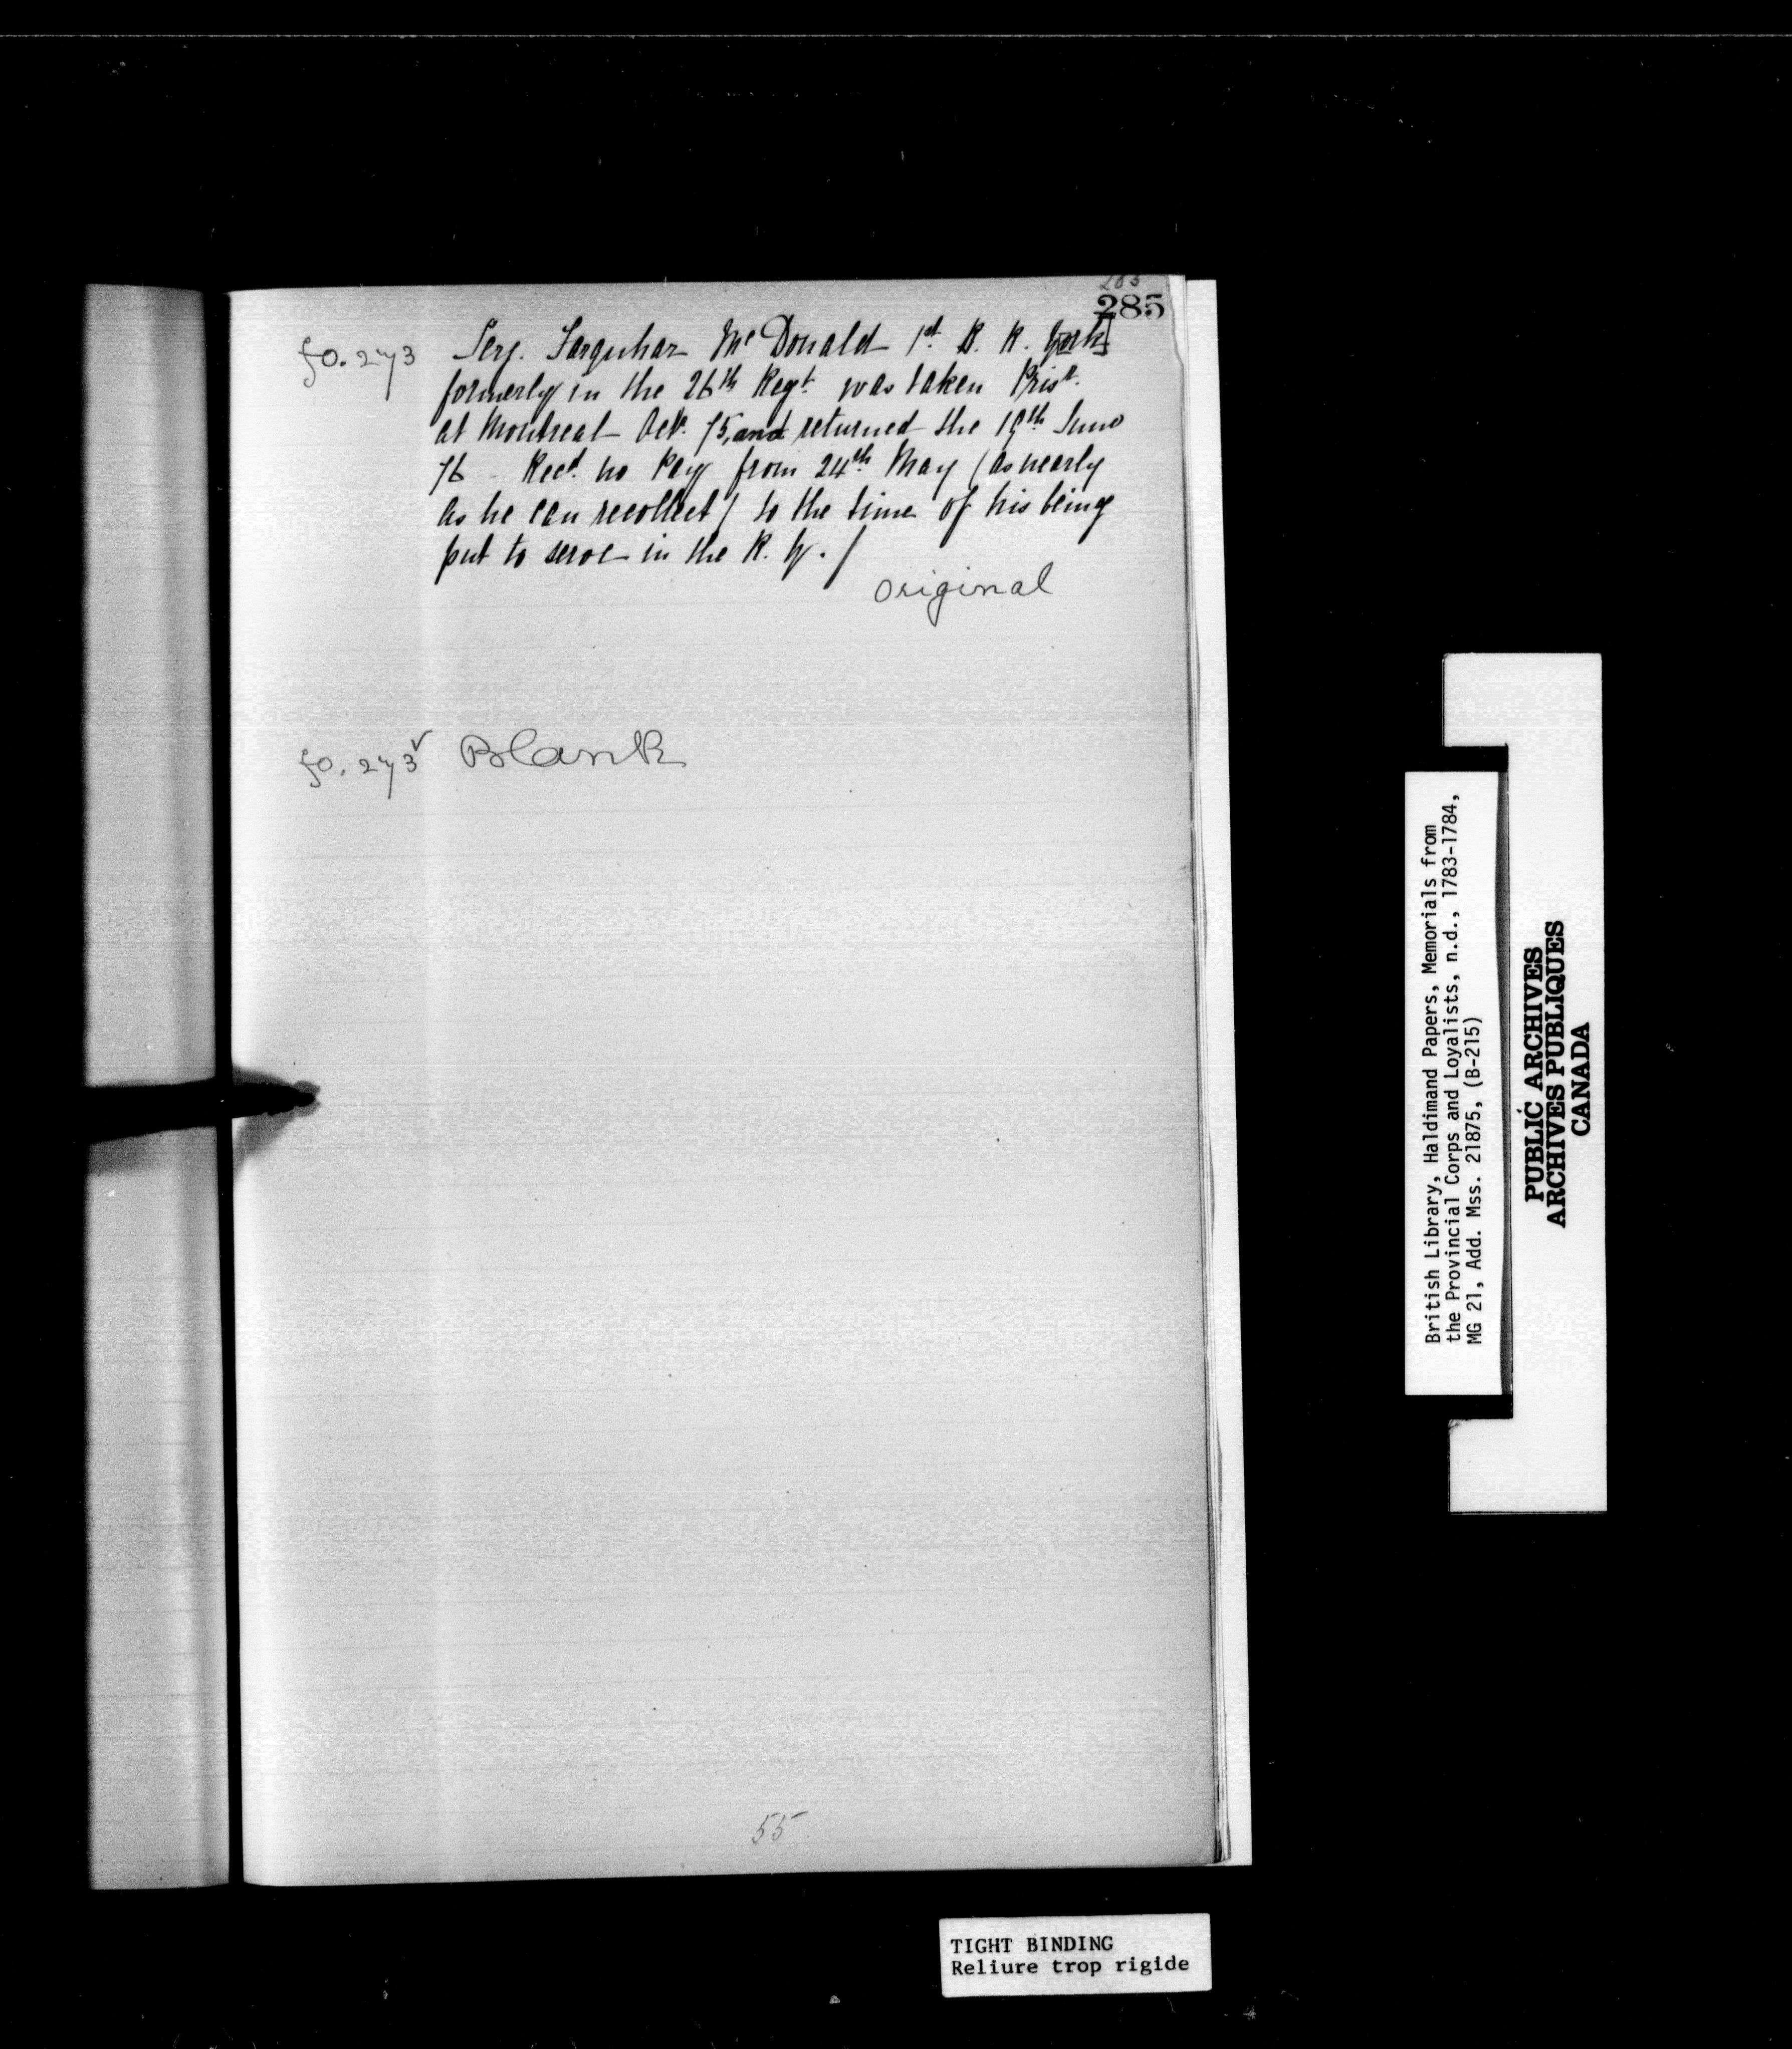 285
285
fo. 273 Serj. Farquhar Mc Donald 1st B. R. York]
formerly in the 26th Regt. was taken Prisr.
at Montreal Octr. 75, and returned the 19th June
76 - Recd. no Pay from 24th May (as nearly
as he can recollect) to the time of his being
put to serve in the R. Y. /
Original
fo. 273v Blank
55
British Library, Haldimand Papers, Memorials from
the Provincial Corps and Loyalists, n.d., 1783-1784,
MG 21, Add. Mss. 21875, (B-215)
PUBLIC ARCHIVES
ARCHIVES PUBLIQUES
CANADA
TIGHT BINDING
Reliure trop rigide